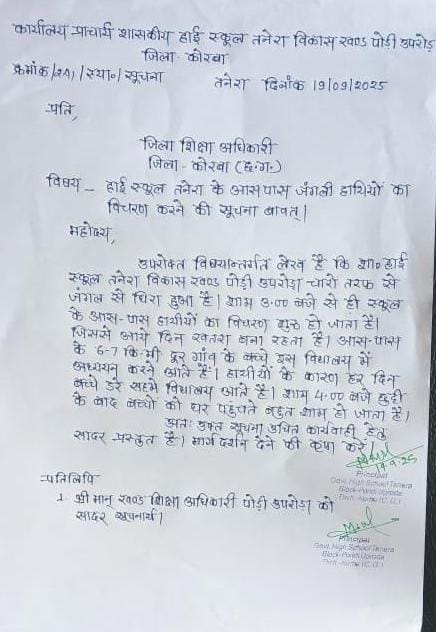 कार्यालय प्राचार्य शासकीय हाई स्कूल तनेरा विकास खण्ड पोड़ी उपरोड़ा
जिला कोरबा
क्रमांक/241/स्था०/सूचना तनेरा दिनांक 19/09/2025
प्रति,
जिला शिक्षा अधिकारी
जिला - कोरबा (छ.ग.)
विषय - हाई स्कूल तनेरा के आसपास जंगली हाथियों का
विचरण करने की सूचना बावत्।
महोदय,
उपरोक्त विषयान्तर्गत लेख है कि शा० हाई
स्कूल तनेरा विकास खण्ड पोड़ी उपरोड़ा चारों तरफ से
जंगल से घिरा हुआ है। शाम 3.00 बजे से ही स्कूल
के आस-पास हाथीयों का विचरण शुरू हो जाता है।
जिससे आये दिन खतरा बना रहता है। आस-पास
के 6-7 कि.मी. दूर गांव के बच्चे इस विद्यालय में
अध्ययन करने आते हैं। हाथीयों के कारण हर दिन
बच्चे डरे सहमे विद्यालय आते हैं। शाम 4.00 बजे छुट्टी
के बाद बच्चों को घर पहुचते बहुत शाम हो जाता है।
अतः उक्त सूचना उचित कार्यवाही हेतु
सादर प्रस्तुत है। मार्ग दर्शन देने की कृपा करें।
19.9.25
Principal
Govt. High School Tanera
Block-Pondi Uproda
Distt.-Korba (C.G.)
प्रतिलिपि
1. श्रीमान् खण्ड शिक्षा अधिकारी पोड़ी उपरोड़ा को
सादर सूचनार्थ।
Principal
Govt. High School Tanera
Block-Pondi Uproda
Distt.-Korba (C.G.)